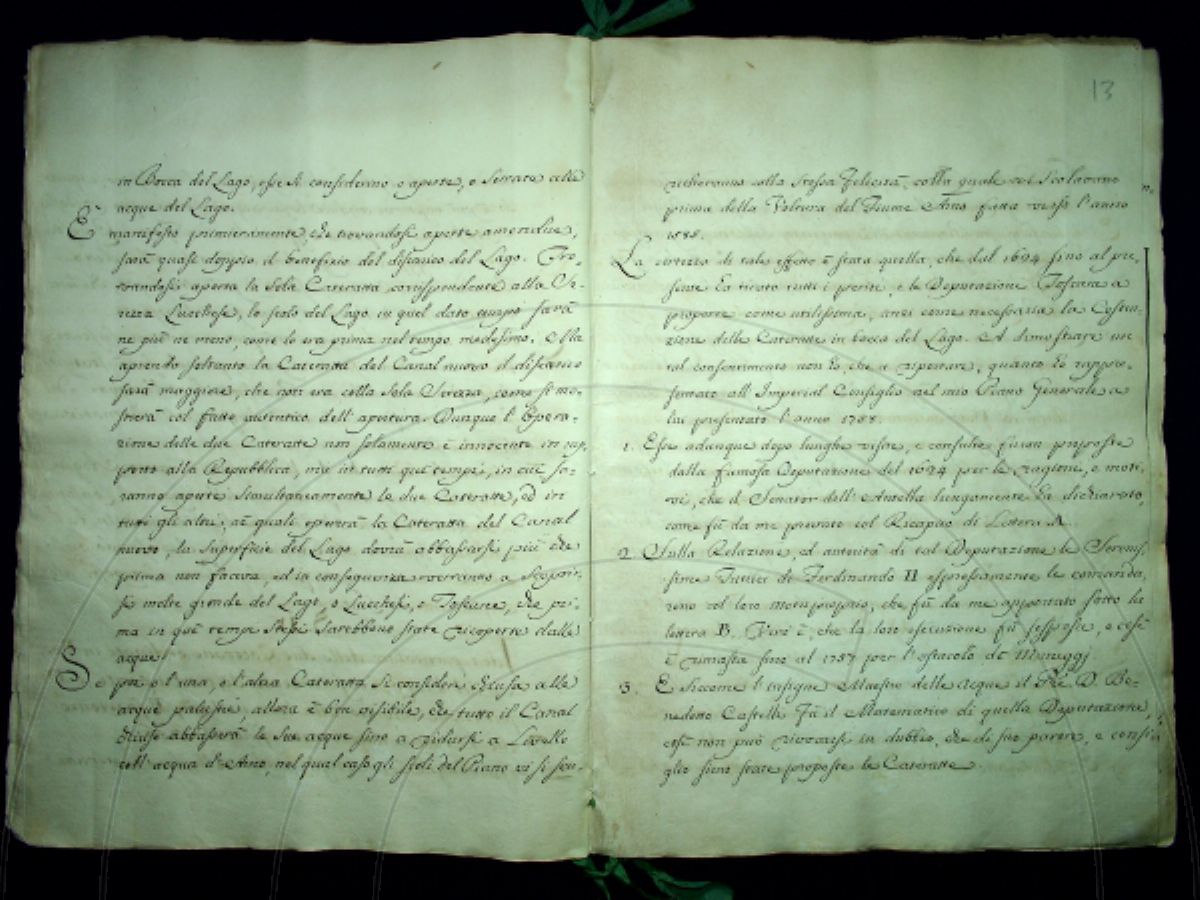 in Bocca del Lago, esse si considerino o aperte, o serrate alle
acque del Lago.
E manifesto primieramente, che trovandosi aperte amendue,
sarà quasi doppio il benefizio del discarico del Lago. Tro-
vandosi aperta la sola Cateratta corrispondente alla Se-
rezza Lucchese, lo scolo del Lago in quel dato tempo sarà
ne più ne meno, come lo era prima nel tempo medesimo. Ma
aprendo soltanto la Cateratta del Canal nuovo il discarico
sarà maggiore, che non era colla sola Serezza, come si mo-
strerà col fatto autentico dell'apertura. Dunque l'Opera-
zione delle due Cateratte non solamente è innocente in rap-
porto alla Repubblica, ma in tutti que' tempi, in cui sa-
ranno aperte simultaneamente le due Cateratte, ed in
tutti gli altri, ne' quali opererà la Cateratta del Canal
nuovo, la superficie del Lago dovrà abbassarsi più che
prima non faceva, ed in conseguenza verranno a scoprir-
si molte gronde del Lago, o Lucchesi, o Toscane, che pri-
ma in que' tempi stessi sarebbono state ricoperte dalle
acque.
Se poi o l'una, o l'altra Cateratta si consideri chiusa alle
acque palustri, allora è ben visibile, che tutto il Canal
chiuso abbasserà le sue acque fino a ridursi a Livello
coll'acqua d'Arno, nel qual caso gli scoli del Piano vi si sca-
13
richeranno colla stessa felicità, colla quale vi si scolavano
prima della Voltura del Fiume Arno fatta verso l'anno
1588.
La certezza di tale effetto è stata quella, che dal 1624 fino al pre-
sente ha tirato tutti i periti, e le Deputazioni Toscane a
proporre come utilissima, anzi come necessaria la Costru-
zione delle Cateratte in bocca del Lago. A dimostrare un
tal consentimento non ho, che a ripetere, quanto ho rappre-
sentato all'Imperial Consiglio nel mio Piano Generale a
lui presentato l'anno
1. Esse adunque dopo lunghe visite, e consulte furon proposte
dalla famosa Deputazione del 1624 per le ragioni, e moti-
vi, che il Senator dell'Antella lungamente ha dichiarato,
come fù da me provato col Ricapito di Lettera A.
2. Sulla Relazione, ed autorità di tal Deputazione le Serenis-
sime Tutrici di Ferdinando II espressamente le comanda-
rono col loro motuproprio, che fù da me apportato sotto la
lettera B. Vero è, che la loro esecuzione fù sospesa, e così
è rimasta fino al 1757 per l'ostacolo de' Maneggi.
3. E siccome l'insigne Maestro delle acque il P. D. Be-
nedetto Castelli fù il Matematico di quella Deputazione,
così non può rivocarsi in dubbio, che di suo parere, e consi-
glio sieno state proposte le Cateratte.